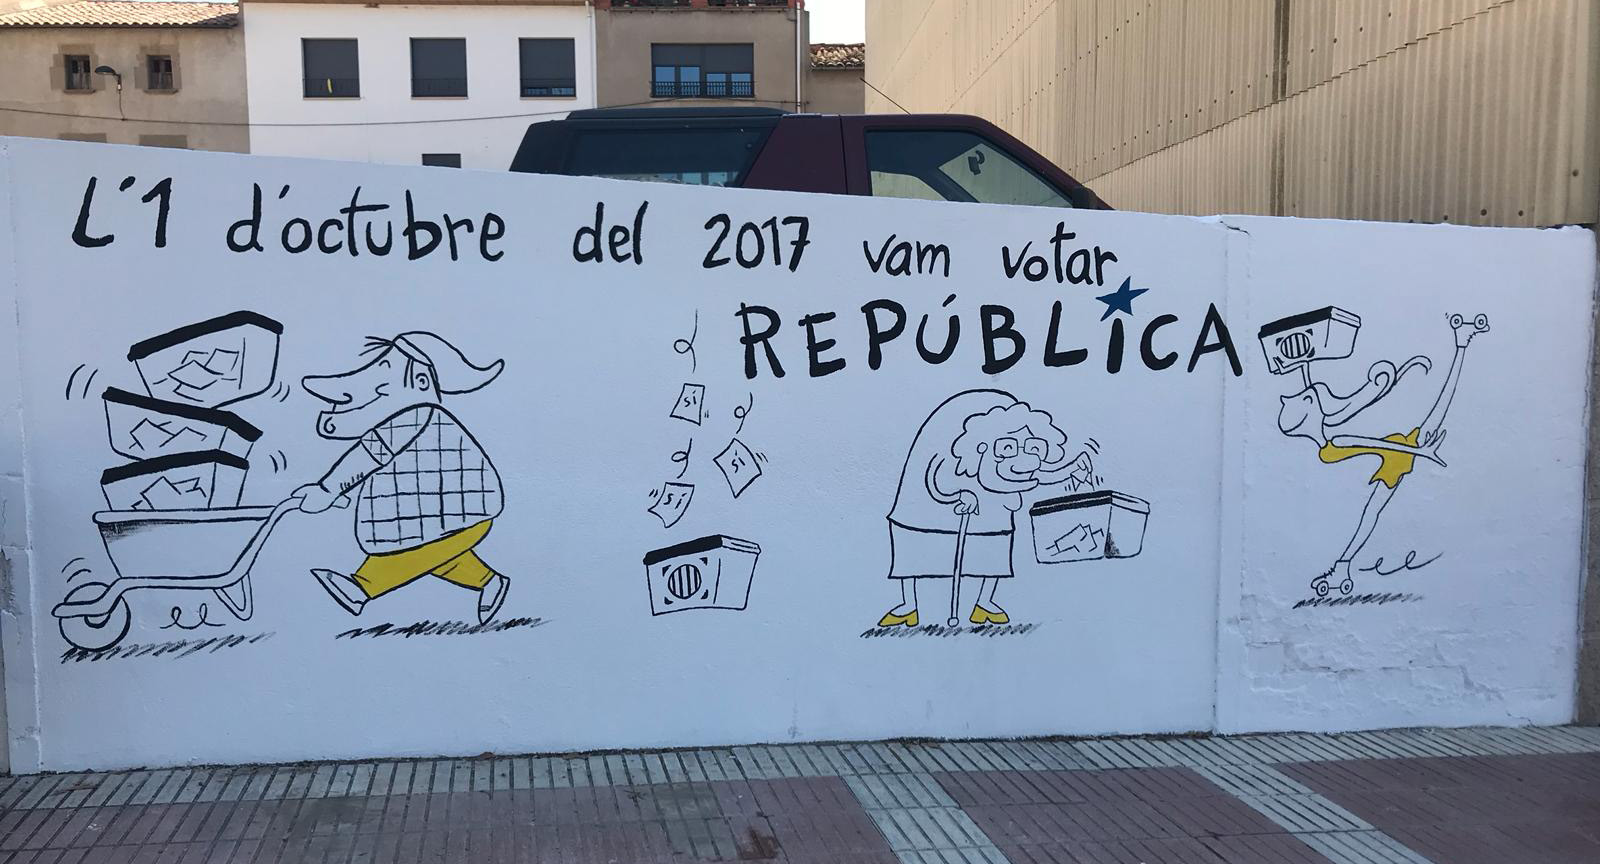 L'1 d'octubre del 2017 vam votar
REPÚBLiCA
sí
sí
sí